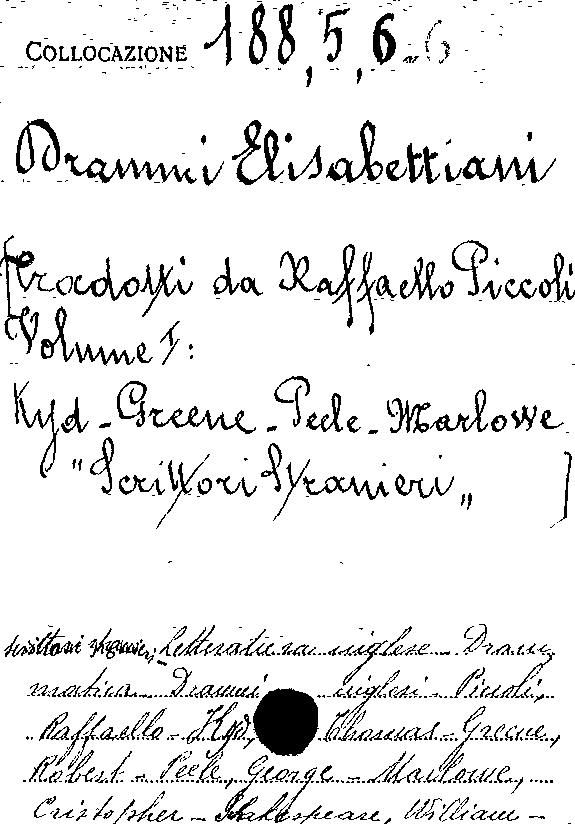 COLLOCAZIONE 188,5,6.-6
Drammi Elisabettiani
[Tradotti da Raffaello Piccoli
Volume I:
Kyd - Greene - Peele - Marlowe
"Scrittori Stranieri" ]
Scrittori stranieri - Letteratura inglese - Dram-
matica - Drammi inglesi - Piccoli,
Raffaello - Kyd, Thomas - Greene,
Robert - Peele, George - Marlowe,
Cristopher - Shakespeare, William -